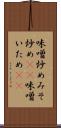 味噌炒めみそ
炒め味噌
いため